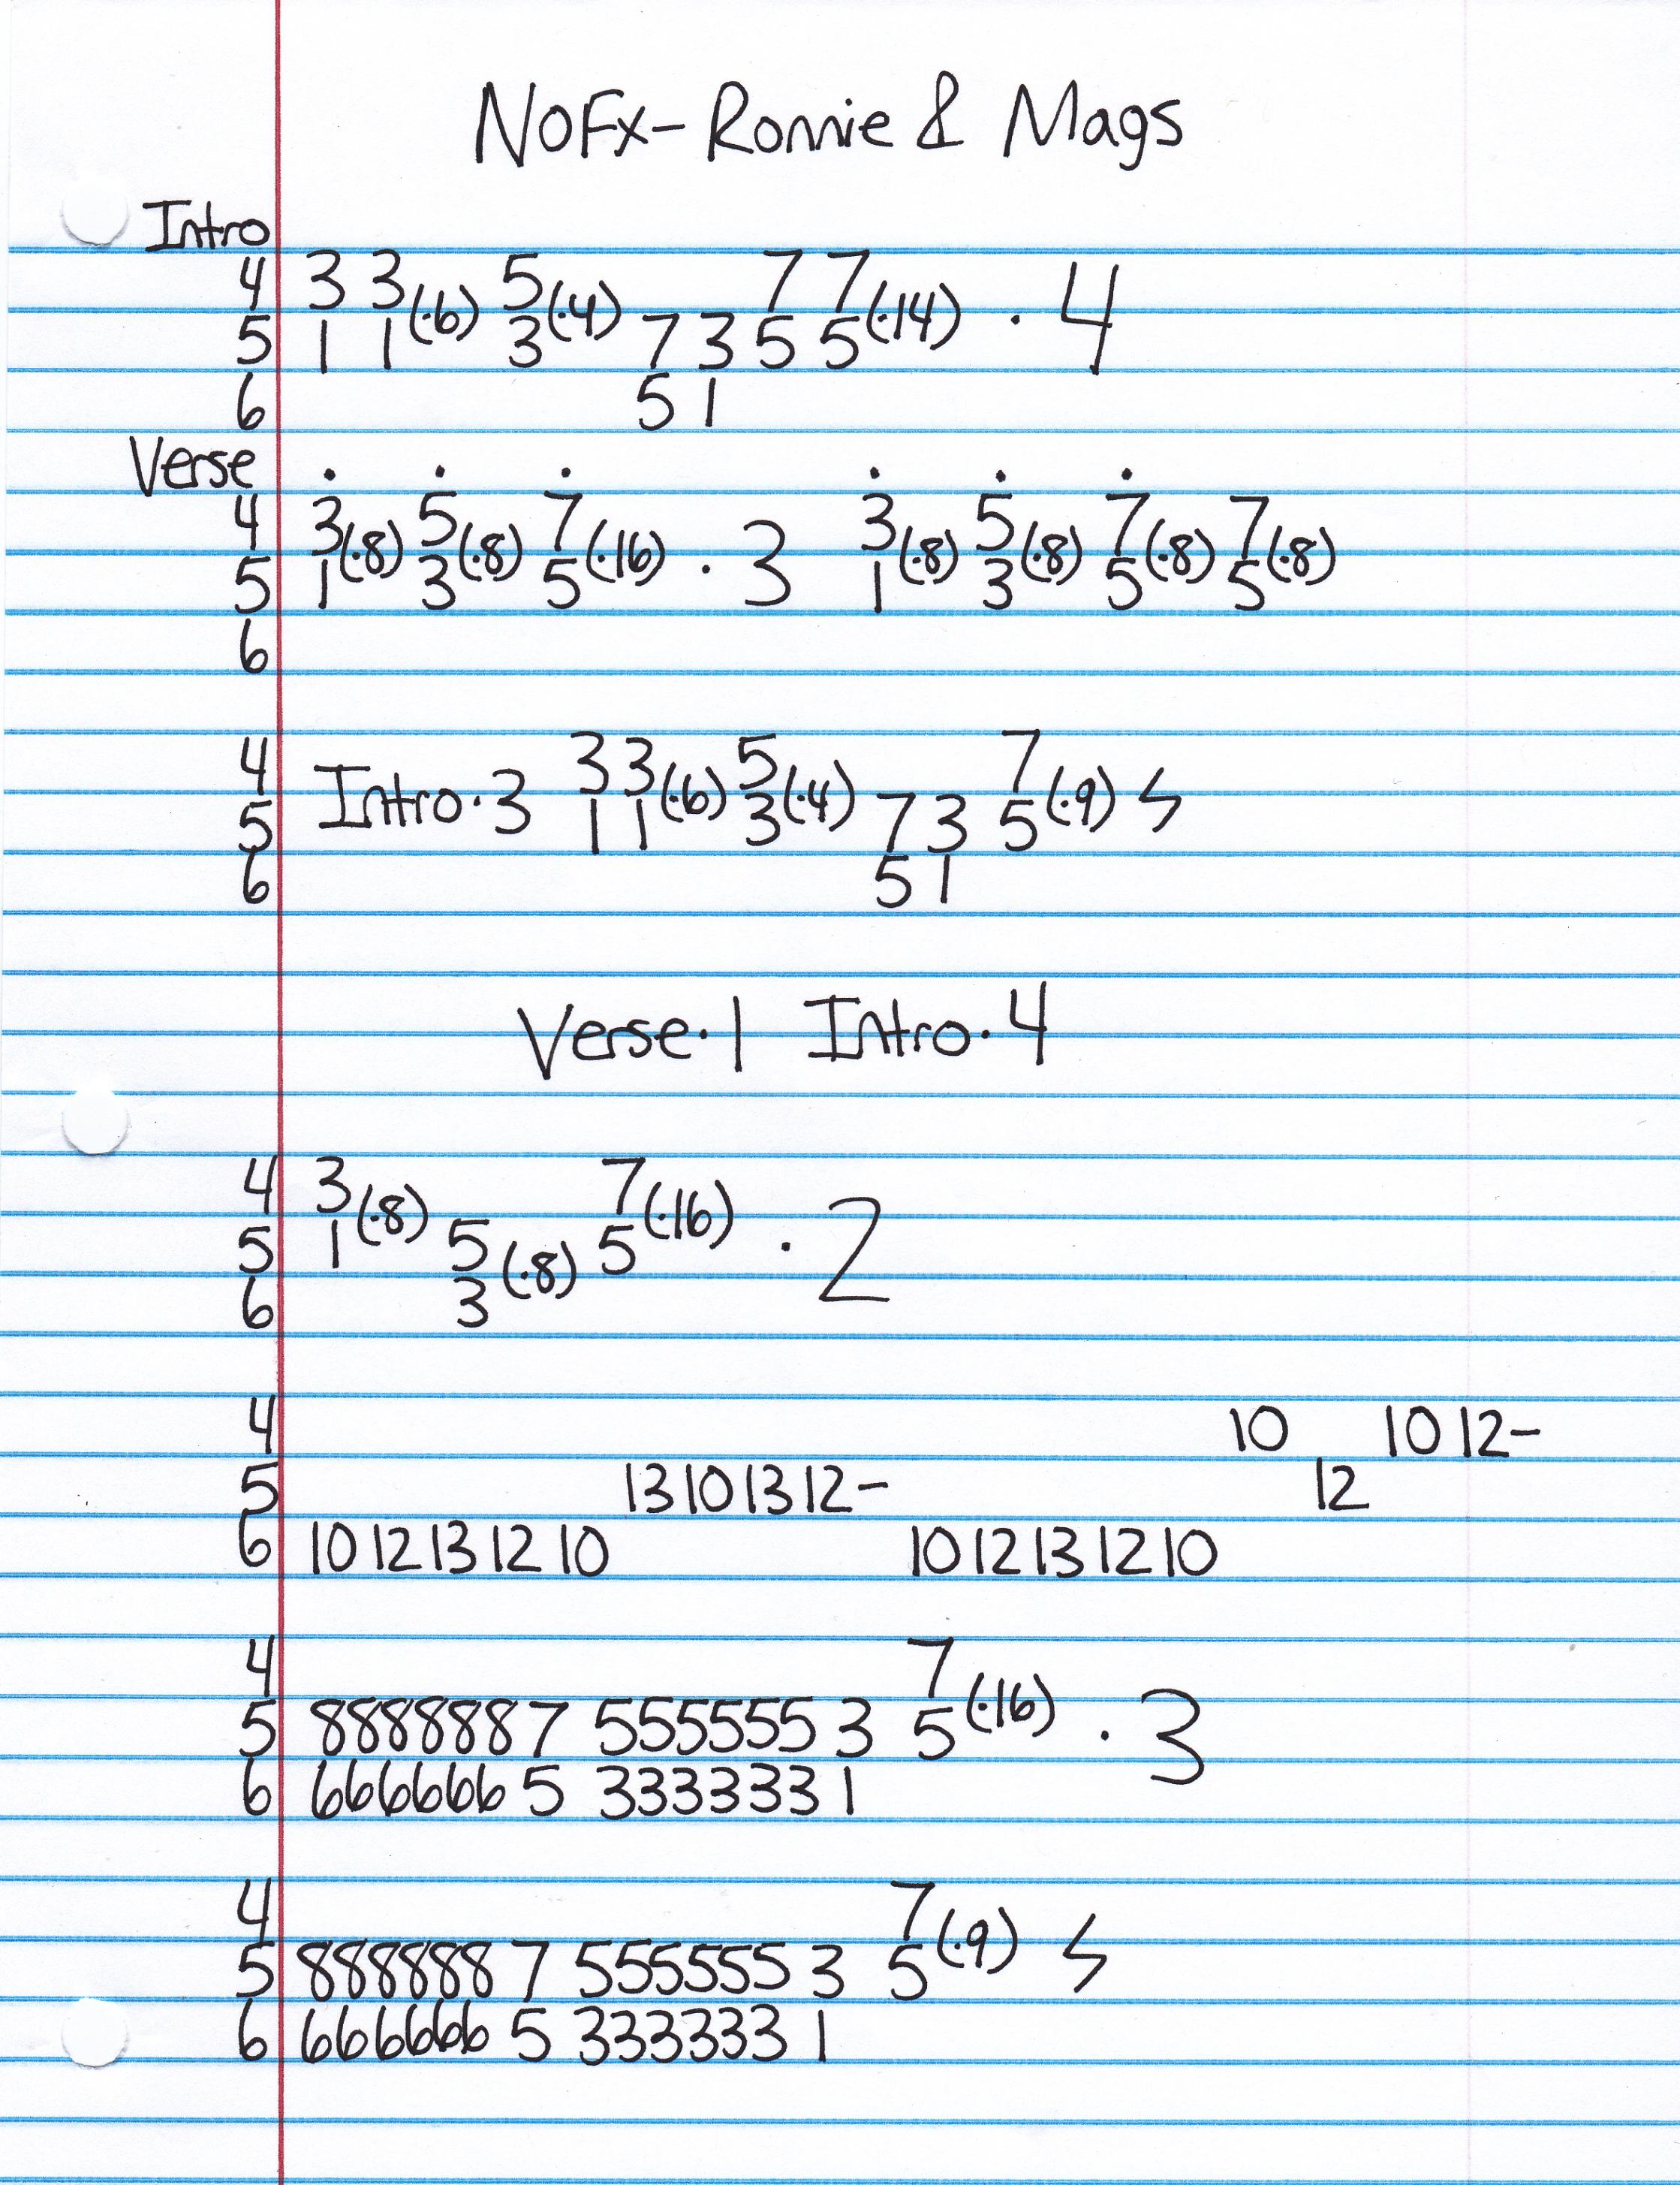 NOFX- Ronnie & Mags
Intro
4 3 3 (·6) 5 (·4) 7 7 (·14) · 4
5 1 1 3 7 3 5 5
6 5 1
Verse
4 3 (·8) 5 (·8) 7 (·16) · 3 3 (·8) 5 (·8) 7 (·8) 7 (·8)
5 1 3 5 1 3 5 5
6
4 3 3 (·6) 5 (·4) 7 (·9) ϟ
5 Intro·3 1 1 3 7 3 5
6 5 1
Verse·1 Intro·4
4 3 (·8) 7 (·16) · 2
5 1 5 (·8) 5
6 3
4 10 10 12-
5 13 10 13 12- 12
6 10 12 13 12 10 10 12 13 12 10
4 7 (·16) · 3
5 888888 7 555555 3 5
6 666666 5 333333 1
4 7 (·9) ϟ
5 888888 7 555555 3 5
6 666666 5 333333 1